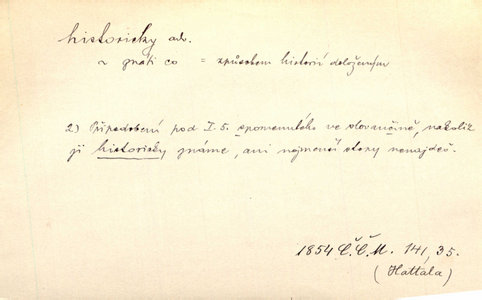 historicky adv.
~ znáti co = způsobem historií doloženým
2) Připodobení pod I. 5. spomenutého ve slovančině, nakoliž
ji historicky známe, ani nejmenší stopy nenajdeš.
1854 Č.Č.M. 141, 35.
(Hattala)